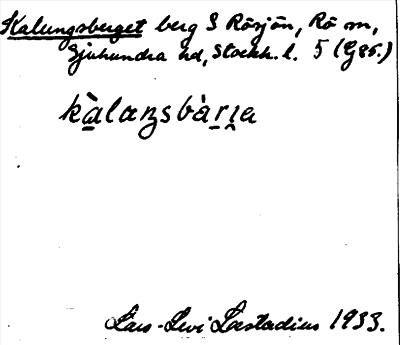 Kalungsberget berg S Rösjön, Rö sn,
Sjuhundra hd, Stockh. l. 5 (G85.)
kàlaŋsbàrɪa
Lars-Levi Læstadius 1933.